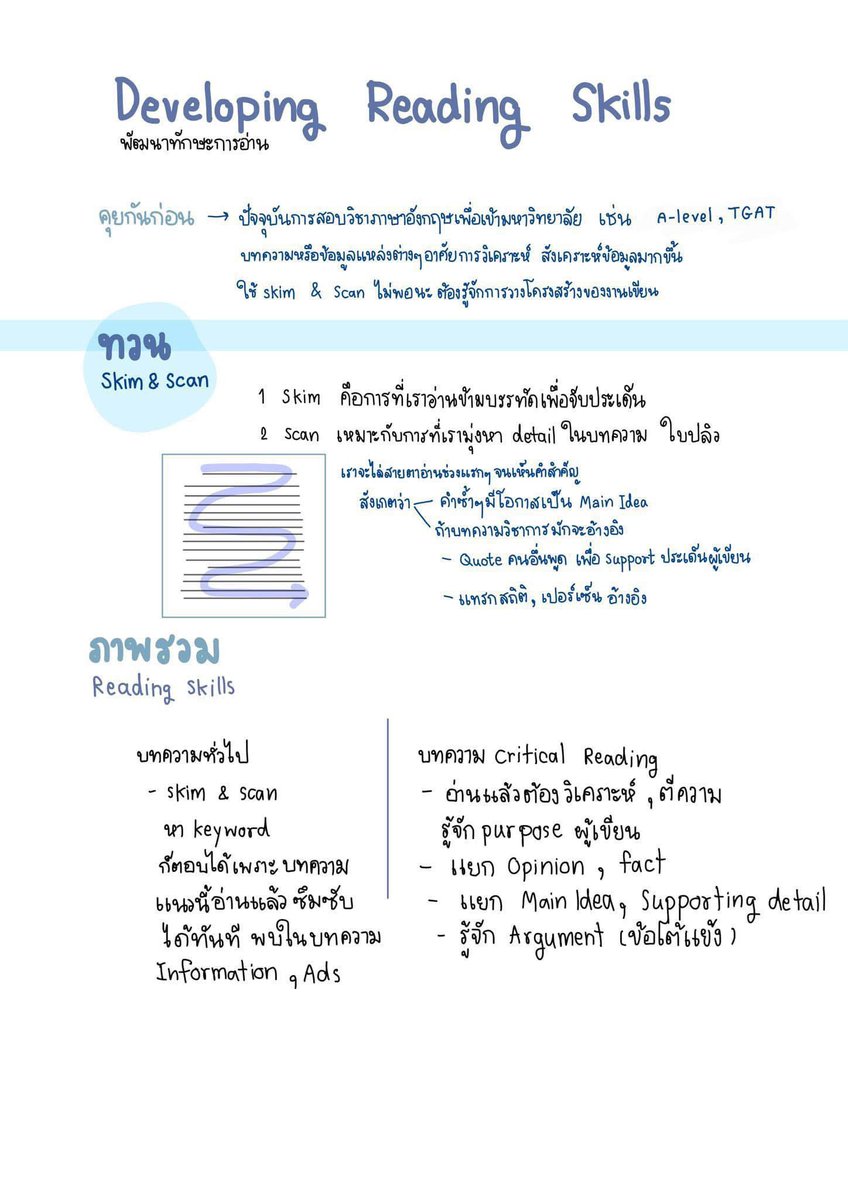 Developing Reading Skills
พัฒนาทักษะการอ่าน
คุยกันก่อน → ปัจจุบันการสอบวิชาภาษาอังกฤษเพื่อเข้ามหาวิทยาลัย เช่น A-level, TGAT
บทความหรือข้อมูลแหล่งต่างๆอาศัยการวิเคราะห์ สังเคราะห์ข้อมูลมากขึ้น
ใช้ skim & Scan ไม่พอนะ ต้องรู้จักการวางโครงสร้างของงานเขียน
ทวน
Skim & Scan
1 Skim คือการที่เราอ่านข้ามบรรทัดเพื่อจับประเด็น
2 Scan เหมาะกับการที่เรามุ่งหา detail ในบทความ ใบปลิว
เราจะไล่สายตาอ่านช่วงแรกๆ จนเห็นคำสำคัญ
สังเกตว่า คำซ้ำๆมีโอกาสเป็น Main Idea
ถ้าบทความวิชาการมักจะอ้างอิง
- Quote คนอื่นพูด เพื่อ Support ประเด็นผู้เขียน
- แทรกสถิติ, เปอร์เซ็น อ้างอิง
ภาพรวม
Reading Skills
บทความทั่วไป
- skim & scan
หา keyword
ก็ตอบได้เพราะ บทความ
แนวนี้อ่านแล้วซึมซับ
ได้ทันที พบในบทความ
Information, Ads
บทความ Critical Reading
- อ่านแล้วต้องวิเคราะห์, ตีความ
รู้จัก purpose ผู้เขียน
- แยก Opinion, fact
- แยก Main Idea, Supporting detail
- รู้จัก Argument (ข้อโต้แย้ง)